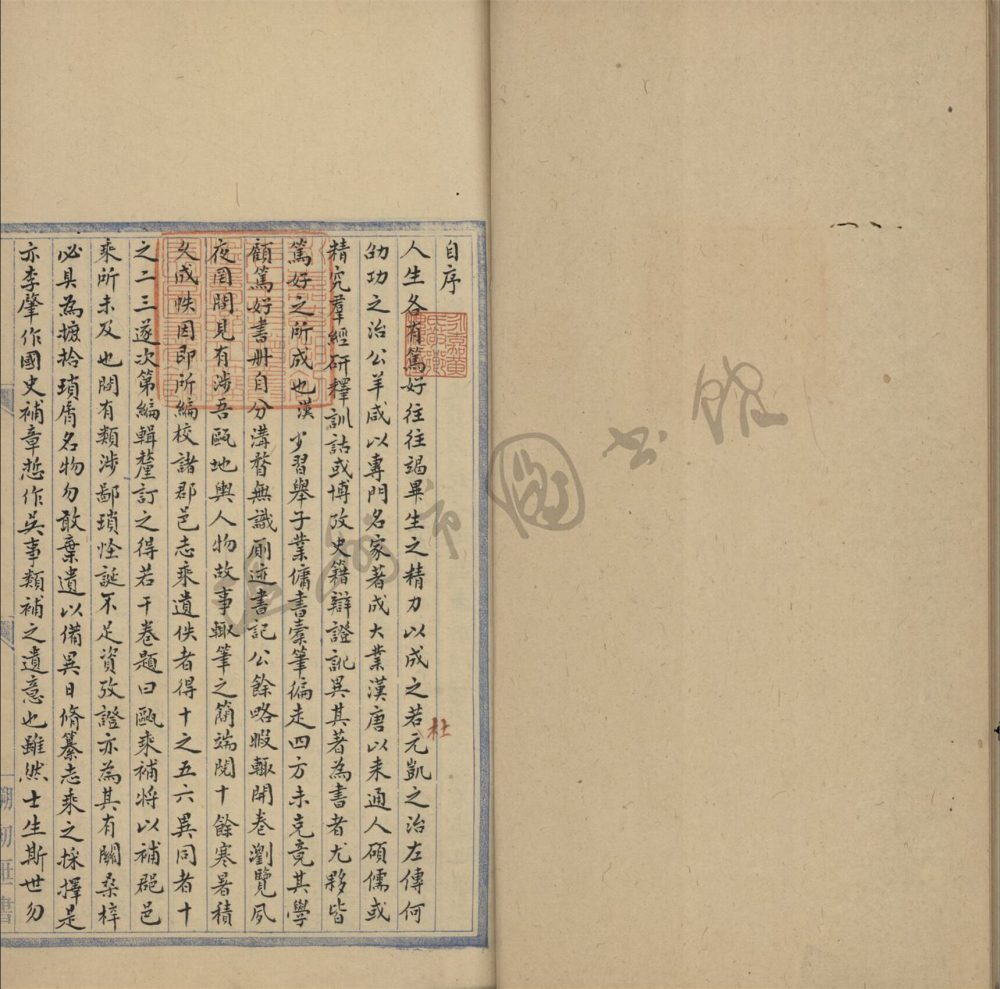 自序
人生各有篤好往往竭畢生之精力以成之若元凱之治左傳何
杜
劭功之治公羊咸以專門名家著成大業漢唐以来通人碩儒或
精究羣經研釋訓詁或博攷史籍辯證訛異其著為書者尤夥皆
篤好之所成也漢少習舉子業傭書橐筆徧走四方未克竟其學
顧篤好書册自分溝瞀無識厠迹書記公餘略暇輙開卷瀏覽夙
夜罔間見有涉吾甌地輿人物故事輙筆之簡端閱十餘寒暑積
久成帙因即所編校諸郡邑志乘遺佚者得十之五六異同者十
之二三遂次第編輯釐訂之得若干卷題曰甌乘補將以補郡邑
乘所未及也間有類涉鄙瑣怪誕不足資攷證亦為其有關桑梓
必具為摭拾瑣屑名物勿敢棄遺以備異日脩纂志乘之採擇是
亦李肇作國史補章悊作吳事類補之遺意也雖然士生斯世勿
永嘉黃
市圖书館